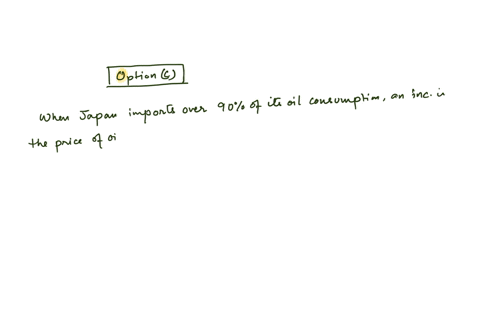 Option (C)
When Japan imports over 90% of its oil consumption, an inc. i
the price of oi